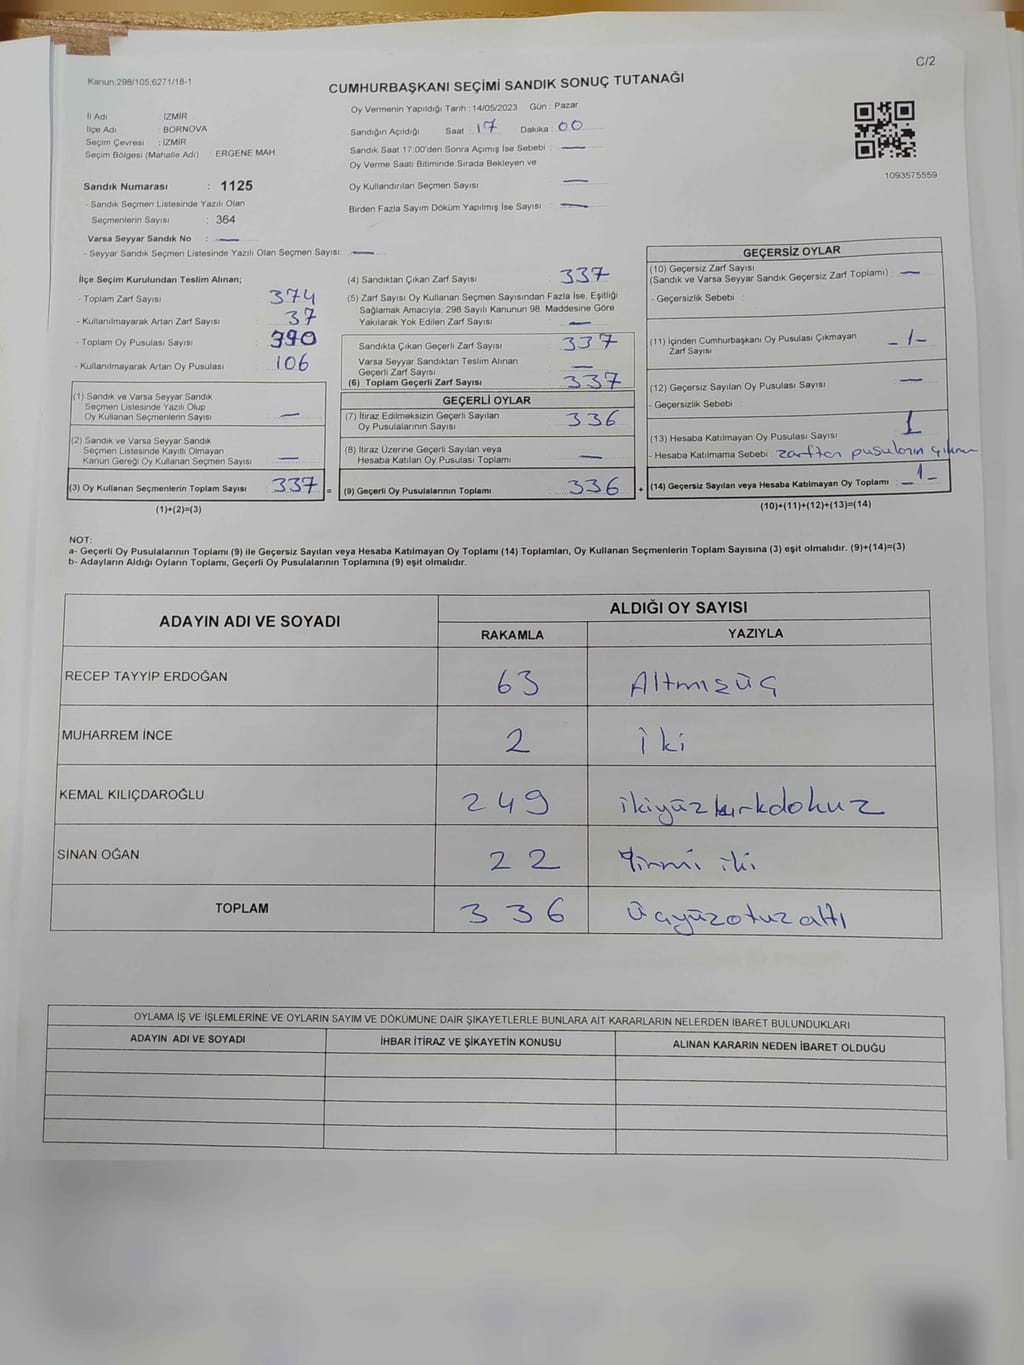 C/2
Kanun,298/105;6271/18-1
CUMHURBAŞKANI SEÇİMİ SANDIK SONUÇ TUTANAĞI
İl Adı : İZMİR
İlçe Adı : BORNOVA
Seçim Çevresi : İZMİR
Seçim Bölgesi (Mahalle Adı) : ERGENE MAH.
Oy Vermenin Yapıldığı Tarih : 14/05/2023 Gün : Pazar
Sandığın Açıldığı Saat 17 Dakika : 00
Sandık Saat 17:00'den Sonra Açımış İse Sebebi : —
Oy Verme Saati Bitiminde Sırada Bekleyen ve
Oy Kullandırılan Seçmen Sayısı : —
Birden Fazla Sayım Döküm Yapılmış İse Sayısı : —
1093575559
Sandık Numarası : 1125
- Sandık Seçmen Listesinde Yazılı Olan
Seçmenlerin Sayısı : 364
Varsa Seyyar Sandık No : —
- Seyyar Sandık Seçmen Listesinde Yazılı Olan Seçmen Sayısı: —
İlçe Seçim Kurulundan Teslim Alınan;
- Toplam Zarf Sayısı : 374
- Kullanılmayarak Artan Zarf Sayısı : 37
- Toplam Oy Pusulası Sayısı : 390
- Kullanılmayarak Artan Oy Pusulası : 106
(1) Sandık ve Varsa Seyyar Sandık
Seçmen Listesinde Yazılı Olup
Oy Kullanan Seçmenlerin Sayısı : —
(2) Sandık ve Varsa Seyyar Sandık
Seçmen Listesinde Kayıtlı Olmayan
Kanun Gereği Oy Kullanan Seçmen Sayısı : —
(3) Oy Kullanan Seçmenlerin Toplam Sayısı : 337 =
(1)+(2)=(3)
(4) Sandıktan Çıkan Zarf Sayısı : 337
(5) Zarf Sayısı Oy Kullanan Seçmen Sayısından Fazla İse, Eşitliği
Sağlamak Amacıyla; 298 Sayılı Kanunun 98. Maddesine Göre
Yakılarak Yok Edilen Zarf Sayısı : —
Sandıkta Çıkan Geçerli Zarf Sayısı : 337
Varsa Seyyar Sandıktan Teslim Alınan
Geçerli Zarf Sayısı : —
(6) Toplam Geçerli Zarf Sayısı : 337
GEÇERLİ OYLAR
(7) İtiraz Edilmeksizin Geçerli Sayılan
Oy Pusulalarının Sayısı : 336
(8) İtiraz Üzerine Geçerli Sayılan veya
Hesaba Katılan Oy Pusulası Toplamı : —
(9) Geçerli Oy Pusulalarının Toplamı : 336 +
GEÇERSİZ OYLAR
(10) Geçersiz Zarf Sayısı
(Sandık ve Varsa Seyyar Sandık Geçersiz Zarf Toplamı) : —
- Geçersizlik Sebebi :
(11) İçinden Cumhurbaşkanı Oy Pusulası Çıkmayan
Zarf Sayısı : -1-
(12) Geçersiz Sayılan Oy Pusulası Sayısı : —
- Geçersizlik Sebebi :
(13) Hesaba Katılmayan Oy Pusulası Sayısı : 1
- Hesaba Katılmama Sebebi : zarftan
(14) Geçersiz Sayılan veya Hesaba Katılmayan Oy Toplamı : -1-
(10)+(11)+(12)+(13)=(14)
NOT:
a- Geçerli Oy Pusulalarının Toplamı (9) ile Geçersiz Sayılan veya Hesaba Katılmayan Oy Toplamı (14) Toplamları, Oy Kullanan Seçmenlerin Toplam Sayısına (3) eşit olmalıdır. (9)+(14)=(3)
b- Adayların Aldığı Oyların Toplamı, Geçerli Oy Pusulalarının Toplamına (9) eşit olmalıdır.
ADAYIN ADI VE SOYADI
ALDIĞI OY SAYISI
RAKAMLA YAZIYLA
RECEP TAYYİP ERDOĞAN 63 Altmışüç
MUHARREM İNCE 2 İki
KEMAL KILIÇDAROĞLU 249 ikiyüzkırkdokuz
SİNAN OĞAN 22 Yirmi iki
TOPLAM 336 Üçyüzotuzaltı
OYLAMA İŞ VE İŞLEMLERİNE VE OYLARIN SAYIM VE DÖKÜMÜNE DAİR ŞİKAYETLERLE BUNLARA AİT KARARLARIN NELERDEN İBARET BULUNDUKLARI
ADAYIN ADI VE SOYADI İHBAR İTİRAZ VE ŞİKAYETİN KONUSU ALINAN KARARIN NEDEN İBARET OLDUĞU